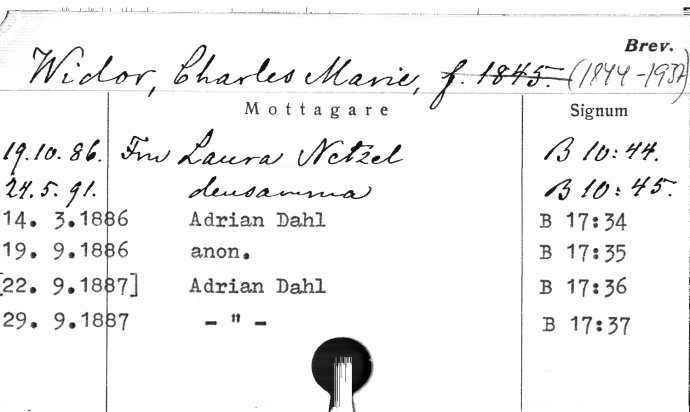 Brev.
Widor, Charles Marie, f. 1845. (1844-1937)
Mottagare Signum
19.10.86. Fru Laura Netzel B 10:44.
24.5.91. densamma B 10:45.
14. 3.1886 Adrian Dahl B 17:34
19. 9.1886 anon. B 17:35
[22. 9.1887] Adrian Dahl B 17:36
29. 9.1887 - " - B 17:37